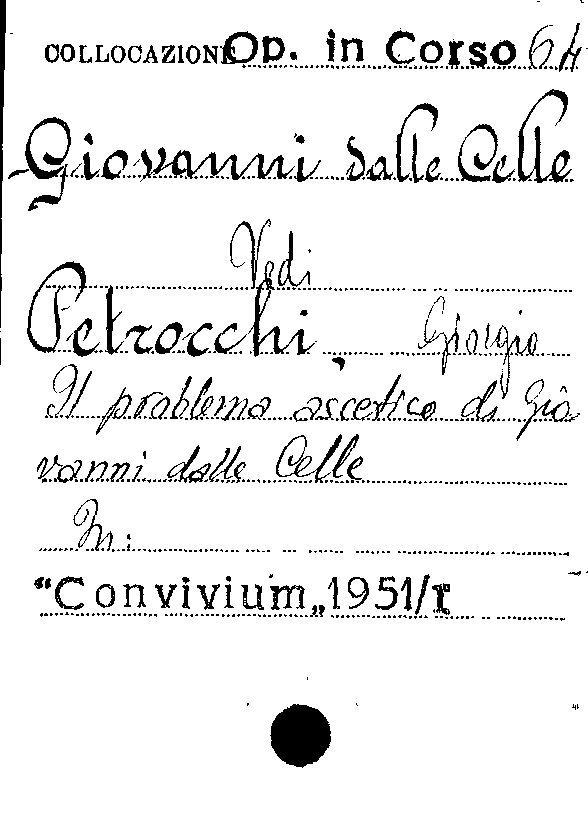 COLLOCAZIONE Op. in Corso 64
Giovanni dalle Celle
Vedi
Petrocchi, Giorgio
Il problema ascetico di Gio
vanni dalle Celle
In:
"Convivium„ 1951/I